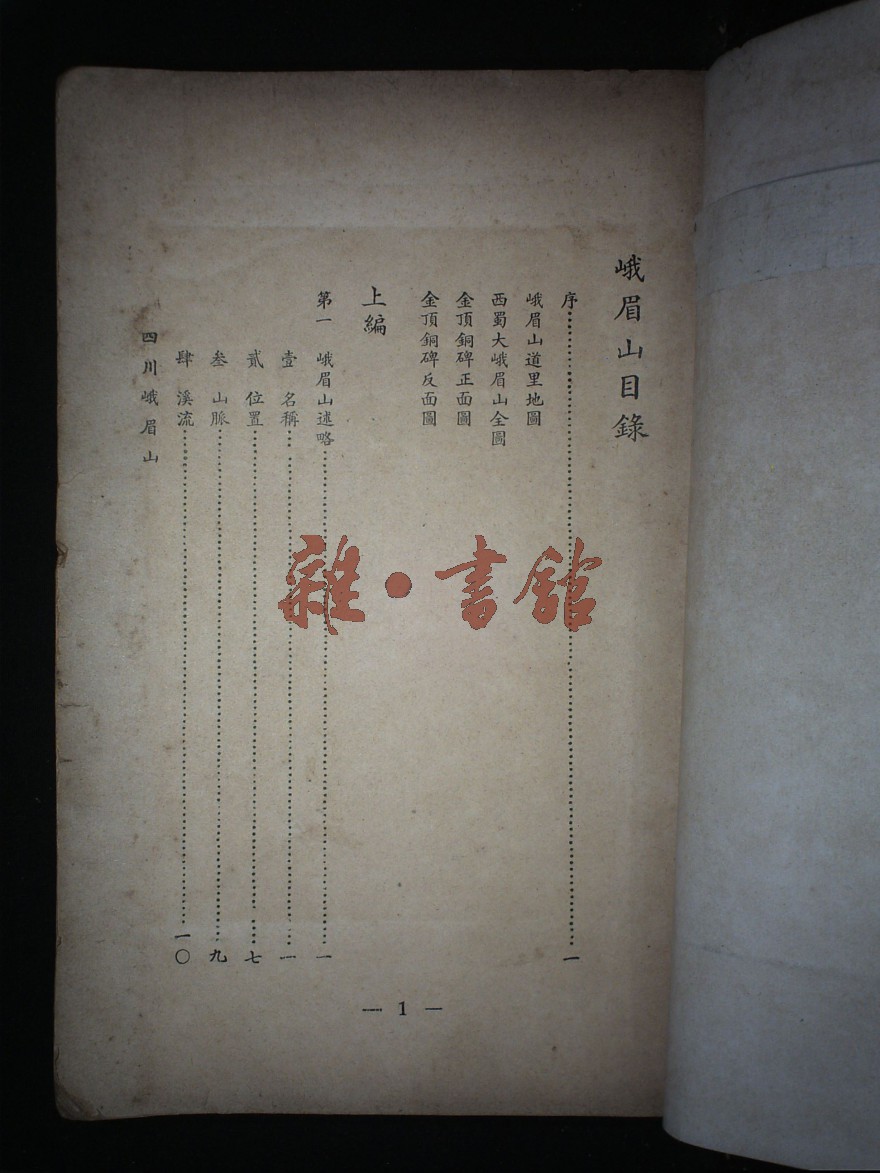 峨眉山目錄
序⋯⋯⋯⋯⋯⋯⋯⋯⋯⋯⋯⋯一
峨眉山道里地圖
西蜀大峨眉山全圖
金頂銅碑正面圖
金頂銅碑反面圖
上編
第一 峨眉山述略⋯⋯⋯⋯⋯⋯⋯⋯⋯⋯⋯⋯一
壹 名稱⋯⋯⋯⋯⋯⋯⋯⋯⋯⋯⋯⋯一
貳 位置⋯⋯⋯⋯⋯⋯⋯⋯⋯⋯⋯⋯七
叁 山脈⋯⋯⋯⋯⋯⋯⋯⋯⋯⋯⋯⋯九
肆 溪流⋯⋯⋯⋯⋯⋯⋯⋯⋯⋯⋯⋯一〇
四川峨眉山
— 1 —
雜·書館